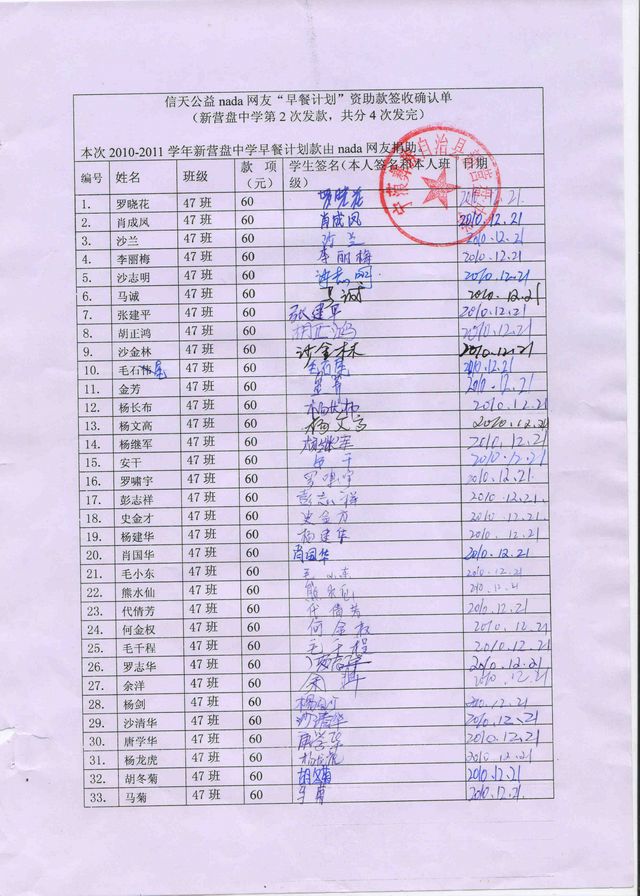 信天公益 nada 网友“早餐计划”资助款签收确认单
（新营盘中学第 2 次发款，共分 4 次发完）
本次 2010-2011 学年新营盘中学早餐计划款由 nada 网友捐助。
编号 姓名 班级 款项（元） 学生签名（本人签名和本人班级） 日期
1. 罗晓花 47 班 60 罗晓花 2010.12.21
2. 肖成凤 47 班 60 肖成凤 2010.12.21
3. 沙兰 47 班 60 沙兰 2010.12.21
4. 李丽梅 47 班 60 李丽梅 2010.12.21
5. 沙志明 47 班 60 沙志明 2010.12.21
6. 马诚 47 班 60 马诚 2010.12.21
7. 张建平 47 班 60 张建平 2010.12.21
8. 胡正鸿 47 班 60 胡正鸿 2010.12.21
9. 沙金林 47 班 60 沙金林 2010.12.21
10. 毛石 47 班 60 2010.12.21
11. 金芳 47 班 60 2010.12.21
12. 杨长布 47 班 60 2010.12.21
13. 杨文高 47 班 60 杨文高 2010.12.21
14. 杨继军 47 班 60 杨继军 2010.12.21
15. 安干 47 班 60 安干 2010.12.21
16. 罗啸宇 47 班 60 罗啸宇 2010.12.21
17. 彭志祥 47 班 60 彭志祥 2010.12.21
18. 史金才 47 班 60 2010.12.21
19. 杨建华 47 班 60 杨建华 2010.12.21
20. 肖国华 47 班 60 肖国华 2010.12.21
21. 毛小东 47 班 60 毛小东 2010.12.21
22. 熊水仙 47 班 60 熊水仙 2010.12.21
23. 代倩芳 47 班 60 代倩芳 2010.12.21
24. 何金权 47 班 60 何金权 2010.12.21
25. 毛千程 47 班 60 毛千程 2010.12.21
26. 罗志华 47 班 60 2010.12.21
27. 余洋 47 班 60 2010.12.21
28. 杨剑 47 班 60 2010.12.21
29. 沙清华 47 班 60 沙清华 2010.12.21
30. 唐学华 47 班 60 唐学华 2010.12.21
31. 杨龙虎 47 班 60 杨龙虎 2010.12.21
32. 胡冬菊 47 班 60 胡冬菊 2010.12.21
33. 马菊 47 班 60 马菊 2010.12.21